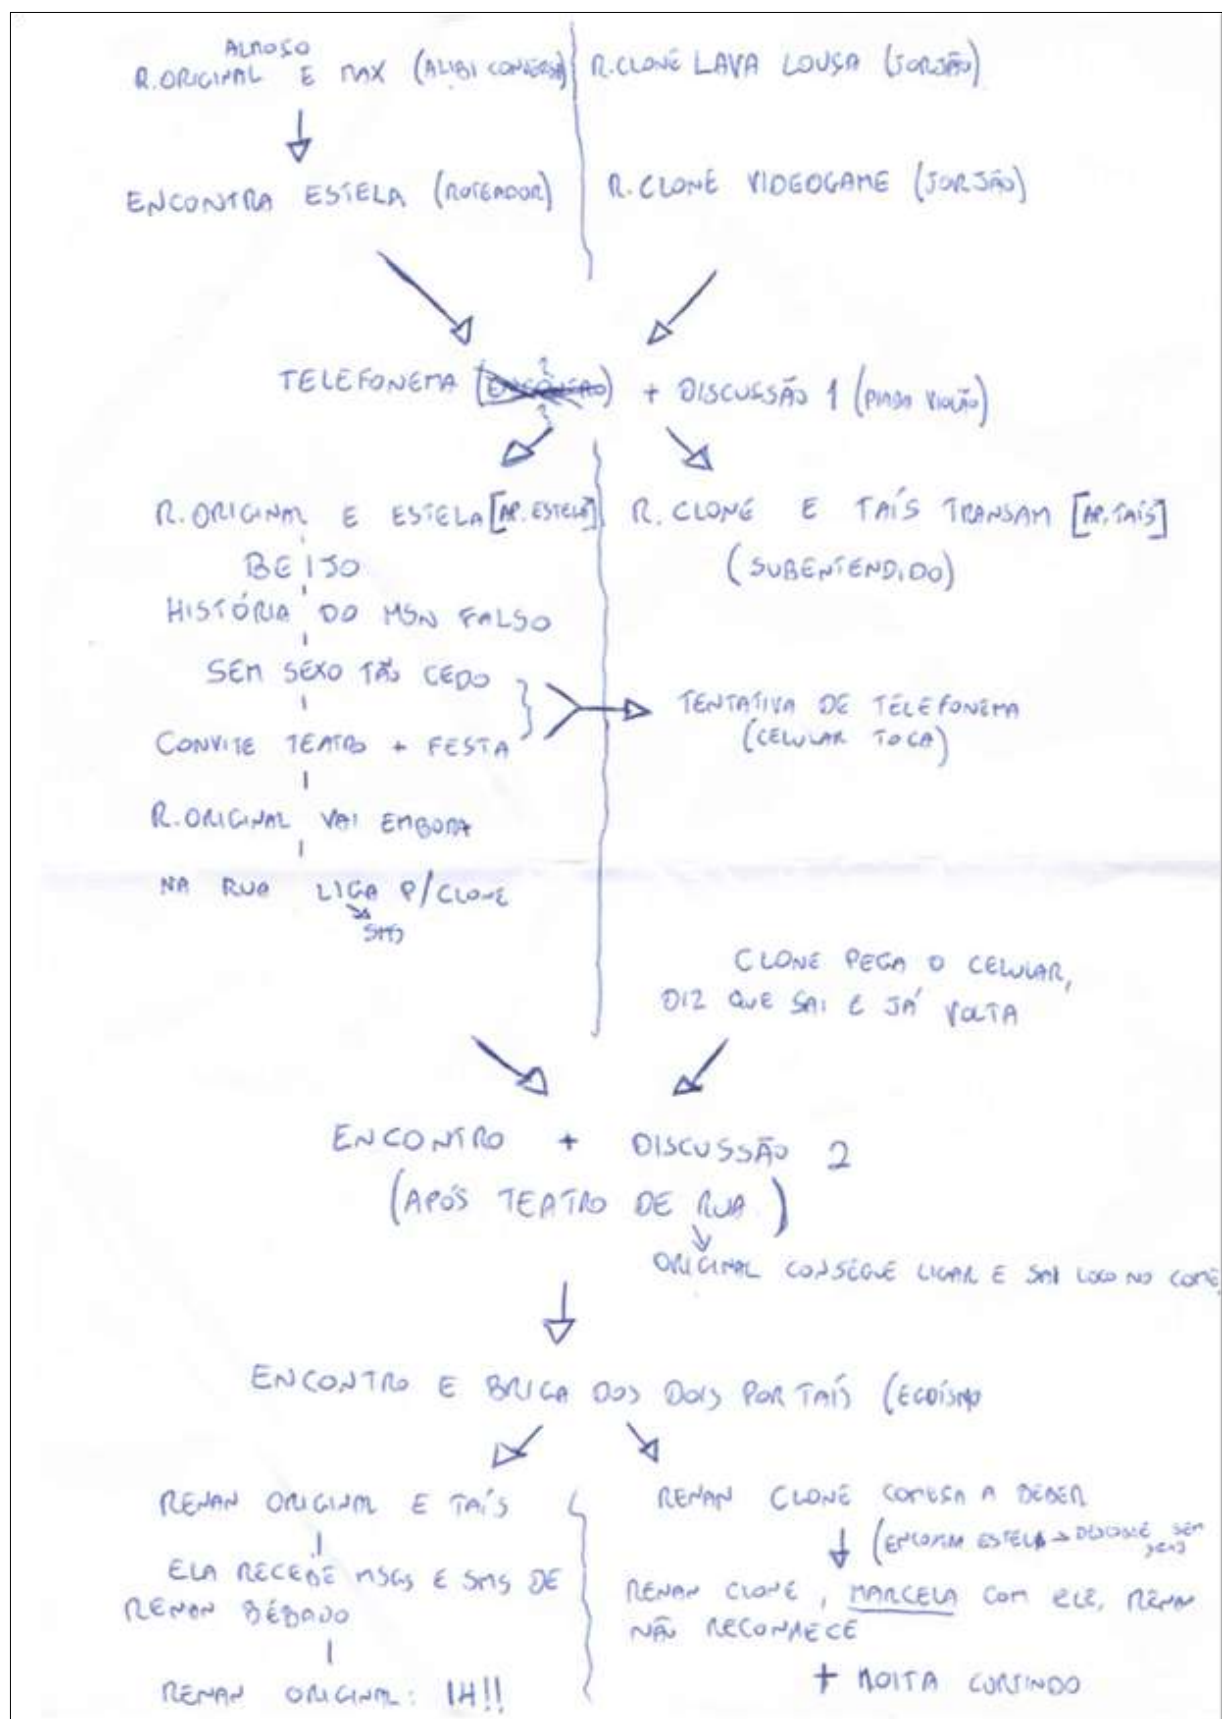 ALMOSO
R.ORIGINAL E MAX (ALIBI CONVERSA)
R.CLONE LAVA LOUSA (JORJÃO)
ENCONTRA ESTELA (ROTEADOR)
R.CLONE VIDEOGAME (JORJÃO)
?
TELEFONEMA (ENCONTRO) + DISCUSSÃO 1 (PIADA VIOLÃO)
?
R.ORIGINAL E ESTELA [AP. ESTELA]
BEIJO
HISTÓRIA DO MSN FALSO
SEM SEXO TÃO CEDO
CONVITE TEATRO + FESTA
R.ORIGINAL VAI EMBORA
NA RUA LIGA P/CLONE
SMS
R. CLONE E TAÍS TRANSAM [AP. TAÍS]
(SUBENTENDIDO)
TENTATIVA DE TELEFONEMA
(CELULAR TOCA)
CLONE PEGA O CELULAR,
DIZ QUE SAI E JÁ VOLTA
ENCONTRO + DISCUSSÃO 2
(APÓS TEATRO DE RUA)
ORIGINAL CONSEGUE LIGAR E SAI LOGO NO COME
ENCONTRO E BRIGA DOS DOIS POR TAÍS (EGOÍSMO
RENAN ORIGINAL E TAÍS
ELA RECEBE MSGS E SMS DE
RENAN BÊBADO
RENAN ORIGINAL: IH!!
RENAN CLONE COMESA A BEBER
(ENCONTRA ESTELA → SEM
RENAN CLONE, MARCELA COM ELE, RENAN
NÃO RECONHECE
+ MOITA CURTINDO